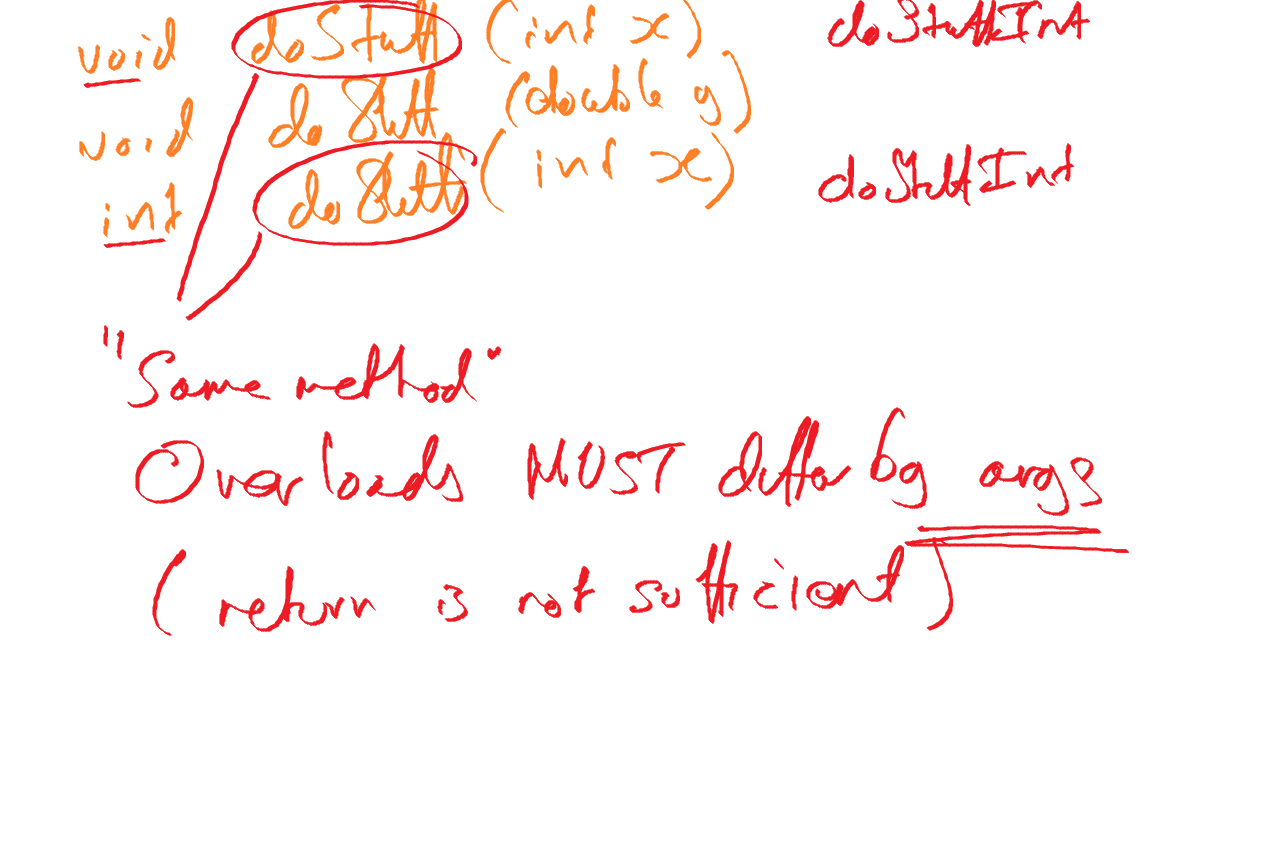 void doStuff (int x) doStuffInt
void doStuff (double y)
int doStuff (int x) doStuffInt
"Same method"
Overloads MUST differ by args
(return is not sufficient)